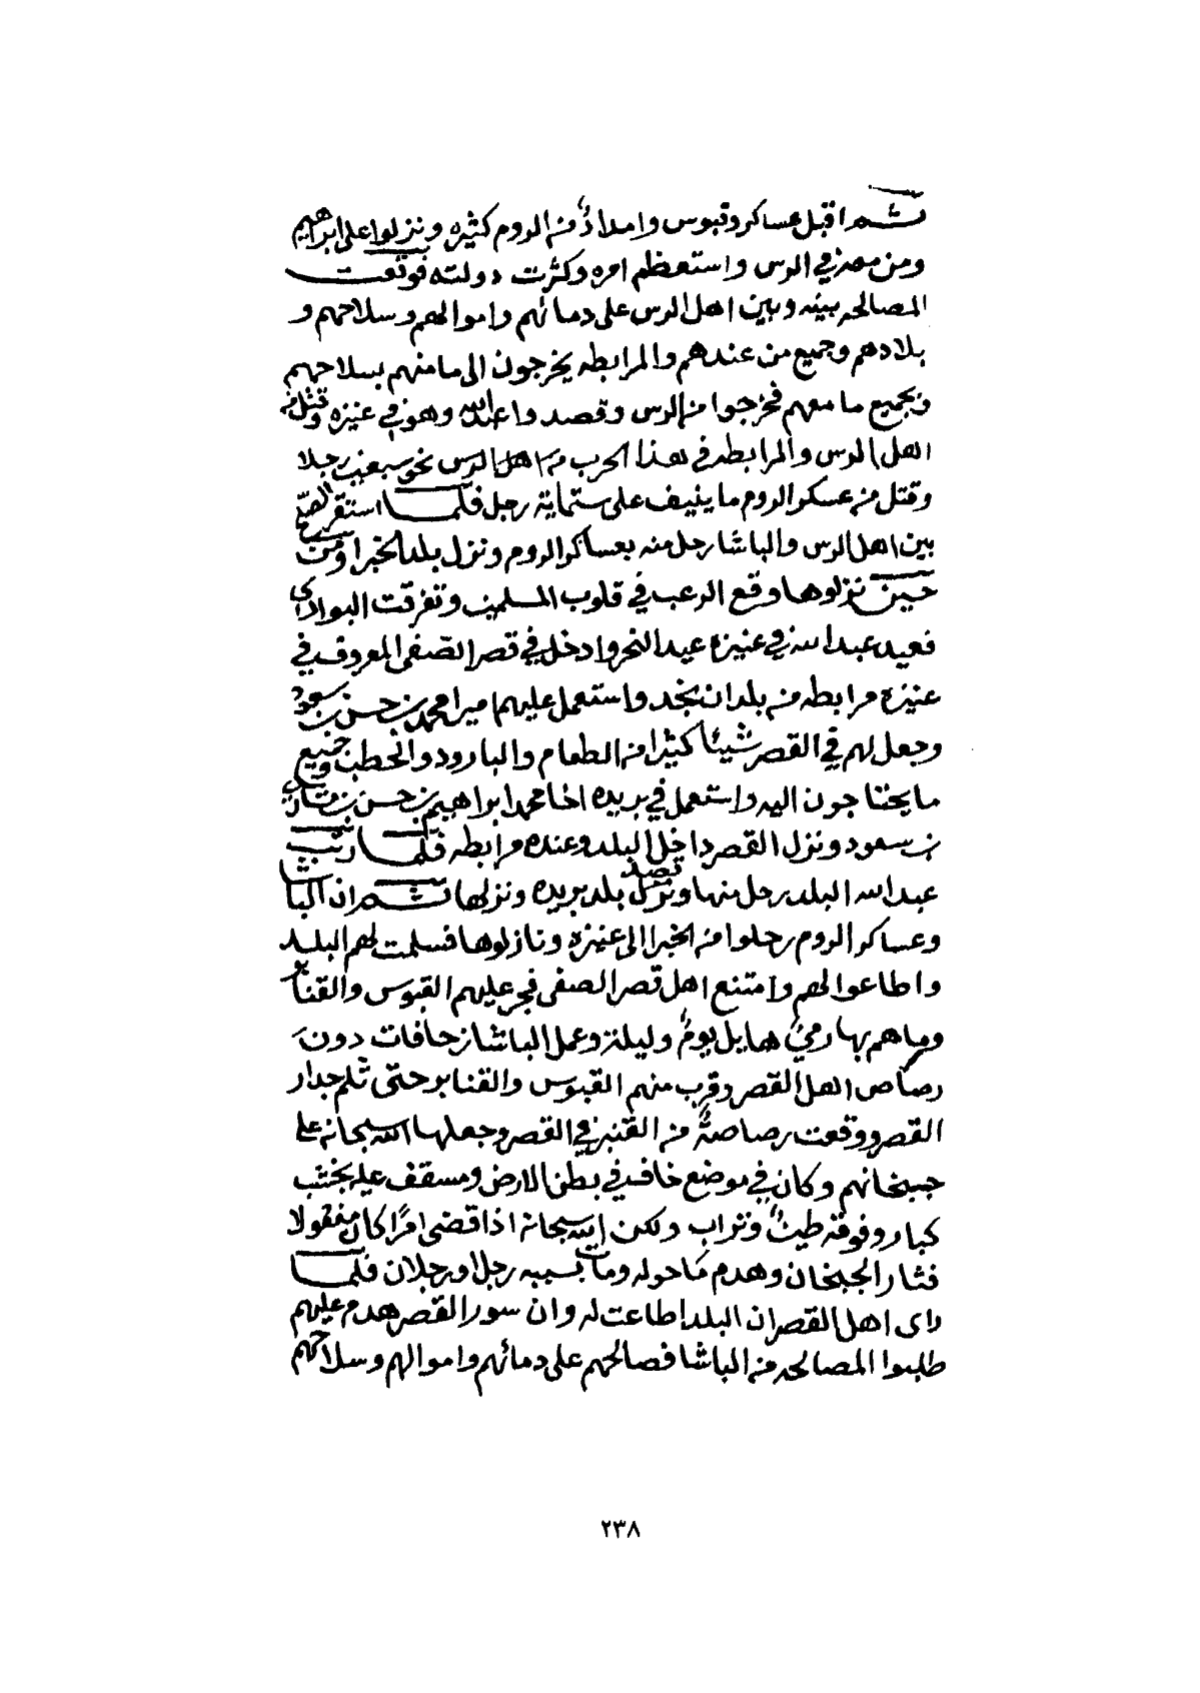 ثم اقبل عساكر وقبوس وامدادٌ من الروم كثيره ونزلوا على ابراهيم
ومن معه في الرس واستعظم امره وكثرت دولته فوقعت
المصالحه بينه وبين اهل الرس على دمائهم واموالهم وسلاحهم و
بلادهم وجميع من عندهم والمرابطه يخرجون الى مامنهم بسلاحهم
وبجميع ما معهم فخرجوا من الرس وقصدوا عبدالله وهو في عنيزه وقتل من
اهل الرس والمرابطه في هذا الحرب من اهل الرس نحو سبعين رجلا
وقتل من عسكر الروم ما ينيف على ستماية رجل فلما استقر الصلح
بين اهل الرس والباشا رحل منه بعساكر الروم ونزل بلد الخبرا ومن
حين نزلوها وقع الرعب في قلوب المسلمين وتفرقت البوادي
فعيد عبدالله في عنيزه عيد النحر وادخل في قصر الصفى المعروف في
عنيزه مرابطه من بلدان نجد واستعمل عليهم اميرا محمد بن حسن بن سعود
وجعل لهم في القصر شيئا كثيرا من الطعام والبارود والحطب وجميع
ما يحتاجون اليه واستعمل في بريده اخا محمد ابراهيم بن حسن بن مشاري
بن سعود ونزل القصر داخل البلد وعنده مرابطه فلما رتب
عبدالله البلد رحل منها وقصد بلد بريده ونزلها ثم ان الباشا
وعساكر الروم رحلوا من الخبرا الى عنيزه ونازلوها فسلمت لهم البلد
واطاعوا لهم وامتنع اهل قصر الصفى فجر عليهم القبوس والقنابر
ورماهم بها رميٌ هايل يومٌ وليلة وعمل الباشا زحافات دون
رصاص اهل القصر وقرب منهم القبوس والقنابر حتى ثلم جدار
القصر ووقعت رصاصةٌ من القنبر في القصر وجعلها الله سبحانه على
جبخانهم وكان في موضع خاف في بطن الارض ومسقف عليه بخشب
كبار وفوقه طينٌ وتراب ولكن الله سبحانه اذا قضى امرًا كان مفعولا
فثار الجبخان وهدم ما حوله ومات بسببه رجل اورجلان فلما
راى اهل القصر ان البلد اطاعت له وان سور القصر هدم عليهم
طلبوا المصالحه من الباشا فصالحهم على دمائهم واموالهم وسلاحهم
٢٣٨